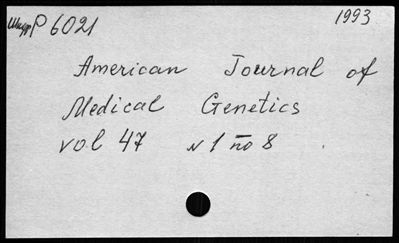 Шифр P 6021 1993
American Journal of
Medical Genetics
vol 47 N 1 no 8